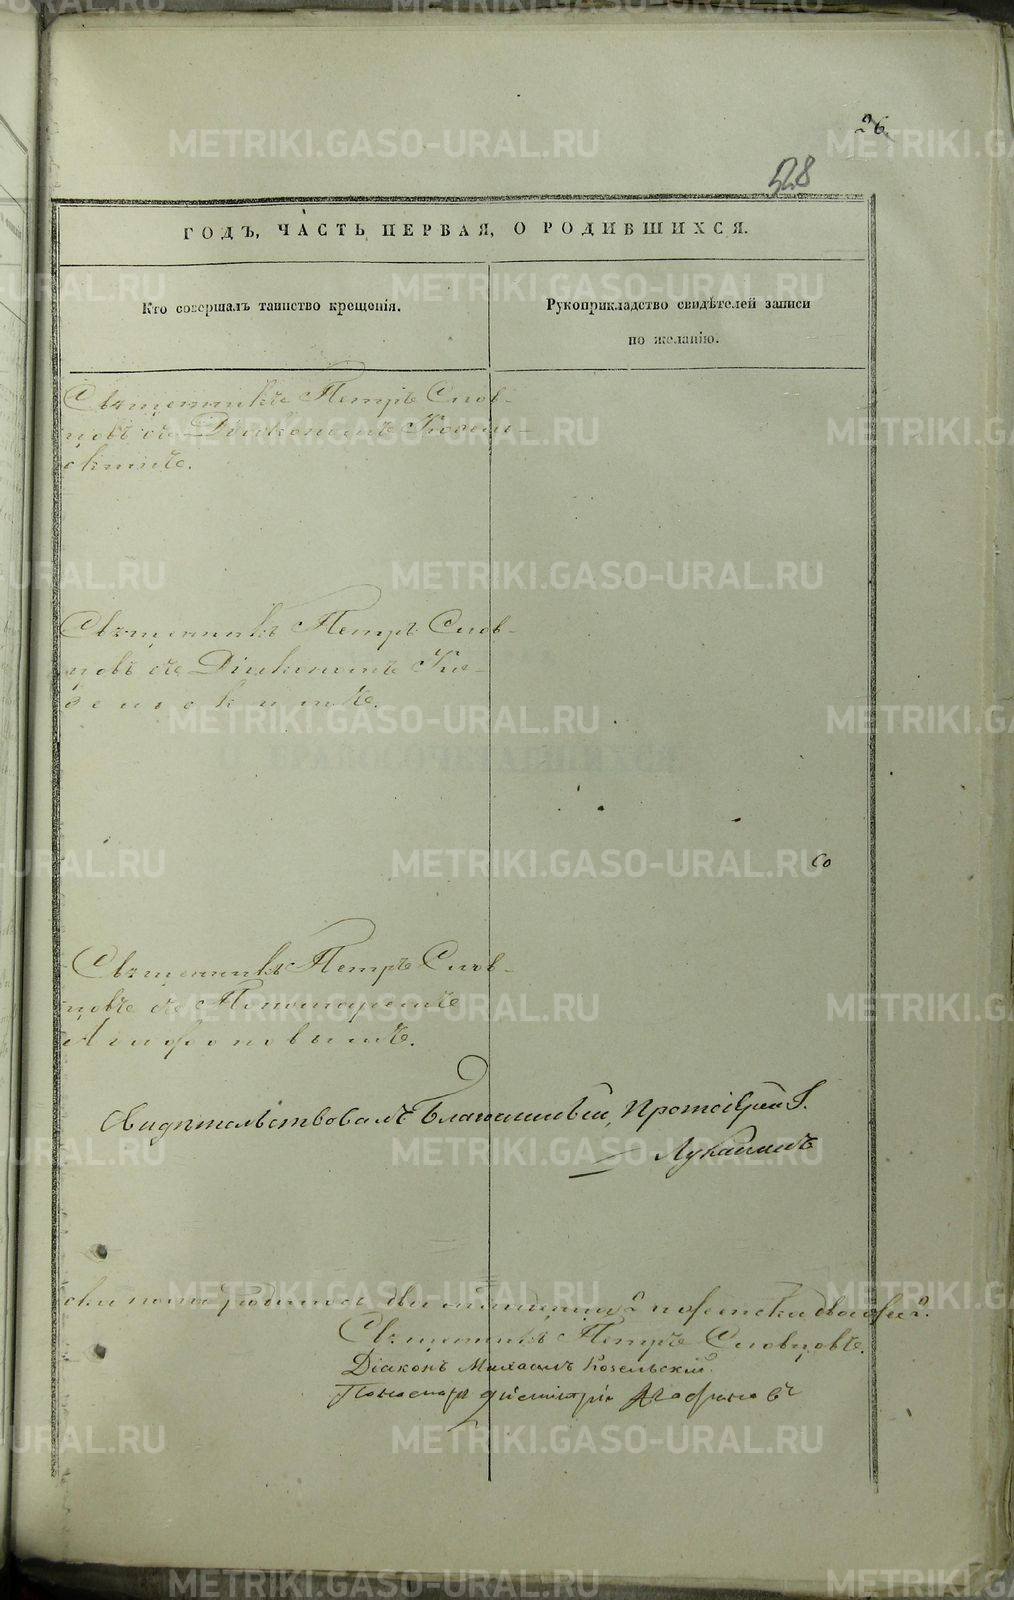 26.
528
ГОДЪ, ЧАСТЬ ПЕРВАЯ, О РОДИВШИХСЯ.
Кто совершалъ таинство крещенія.
Рукоприкладство свидѣтелей записи
по желанію.
Священникъ Петръ Слов-
цовъ съ Діакономъ Козель-
скимъ.
Священникъ Петръ Слов-
цовъ съ Діакономъ Ко-
зельскимъ.
Священникъ Петръ Слов-
цовъ съ Пономаремъ
Агафоновымъ.
Свидѣтельствовалъ Благочинный, Протоіерей І.
Лукатинъ
родилось
Священникъ Петръ Словцовъ.
Діаконъ Михаилъ Козельскій.
Пономарь Димитрій Агафоновъ
METRIKI.GASO-URAL.RU